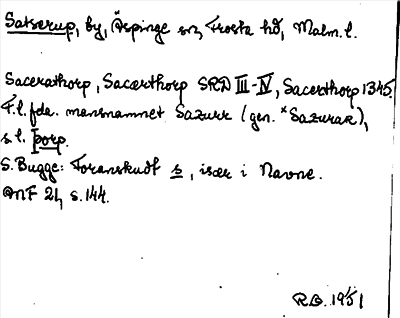 Satserup, by, Äspinge sn, Frosta hd, Malm. l.
Sacerathorp, Sacærthorp SRD III-IV, Sacerthorp 1345.
F. l. fda. mansnamnet Sazurr (gen. *Sazurar),
s. l. þorp.
S. Bugge: Foranskudt s, især i Navne.
ANF 21, s. 144.
R.B. 1951